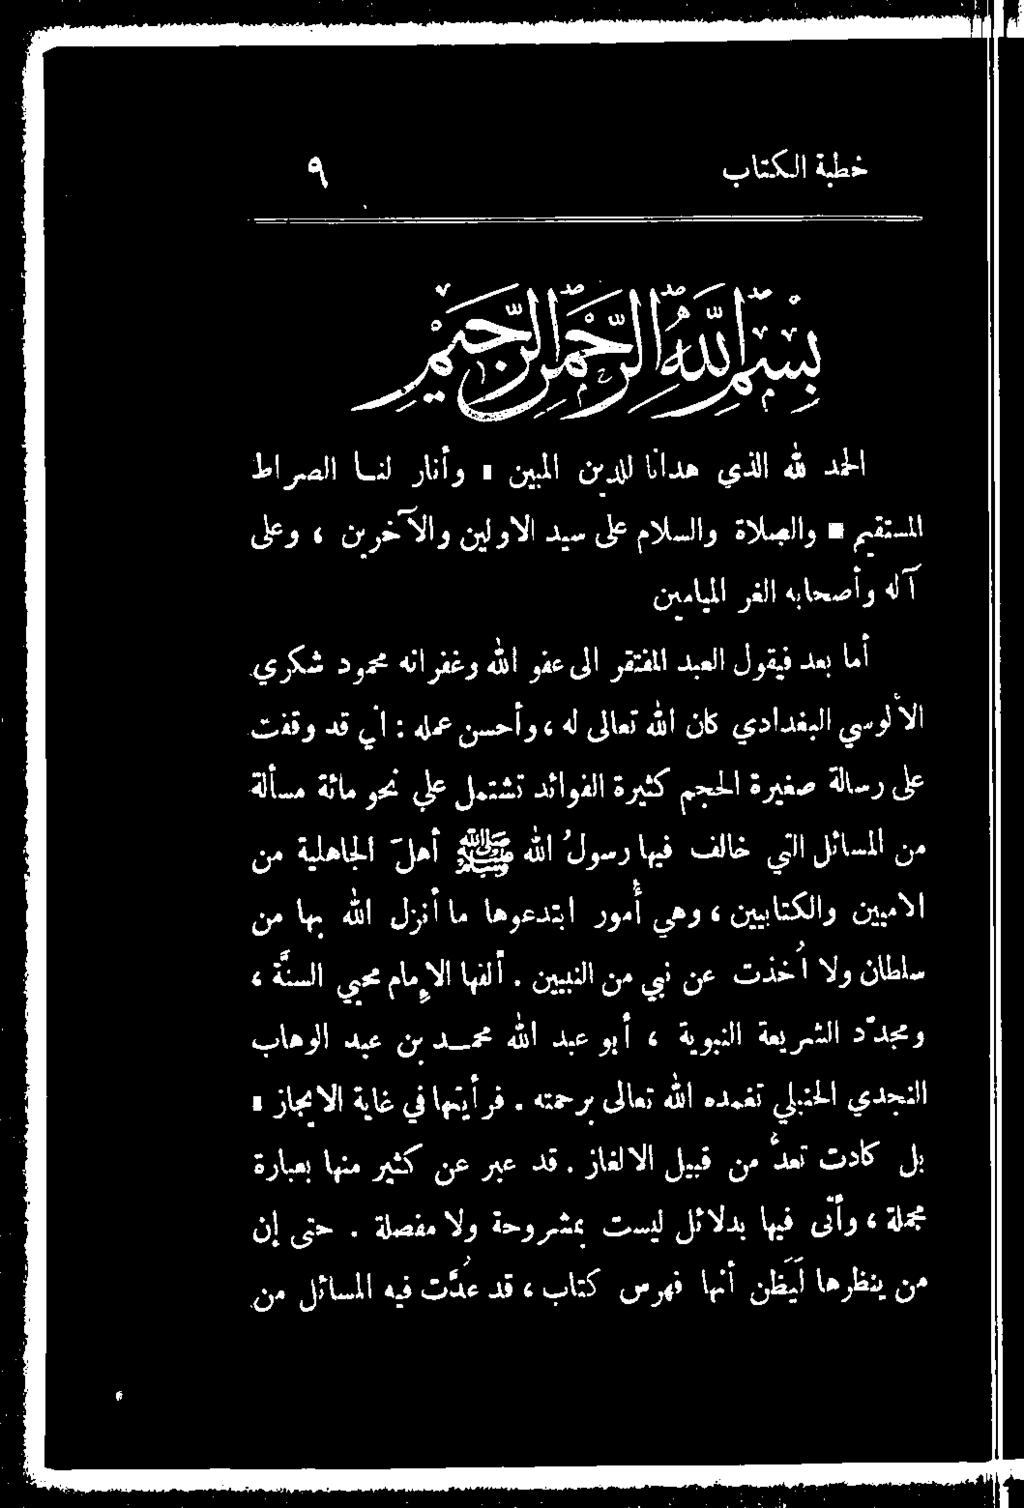 خطبة الكتاب ٩
بِسْمِ اللهِ الرَّحْمنِ الرَّحِيمِ
الحمد لله الذي هدانا للدين المبين ▪ وأنار لنا الصراط
المستقيم ▪ والصلاة والسلام على سيد الاولين والآخرين ، وعلى
آله وأصحابه الغر الميامين
أما بعد فيقول العبد المفتقر الى عفو الله وغفرانه محمود شكري
الألوسي البغدادي كان الله تعالى له ، وأحسن عمله : اني قد وقفت
على رسالة صغيرة الحجم كثيرة الفوائد تشتمل علي نحو مائة مسألة
من المسائل التي خالف فيها رسولُ الله ﷺ أهلَ الجاهلية من
الاميين والكتابيين ، وهي أُمور ابتدعوها ما أنزل الله بها من
سلطان ولا أُخذت عن نبي من النبيين . ألفها الاِمام محيي السنَّة ،
ومجدّد الشريعة النبوية ، أبو عبد الله محمد بن عبد الوهاب
النجدي الحنبلي تغمده الله تعالى برحمته . فرأيتها في غاية الايجاز ▪
بل كادت تعدُّ من قبيل الالغاز . قد عبر عن كثير منها بعبارة
مجملة ، وأتى فيها بدلائل ليست بمشروحة ولا مفصلة . حتى إن
من ينظرها لَيَظن أنها فهرس كتاب ، قد عُدَّت فيه المسائل من